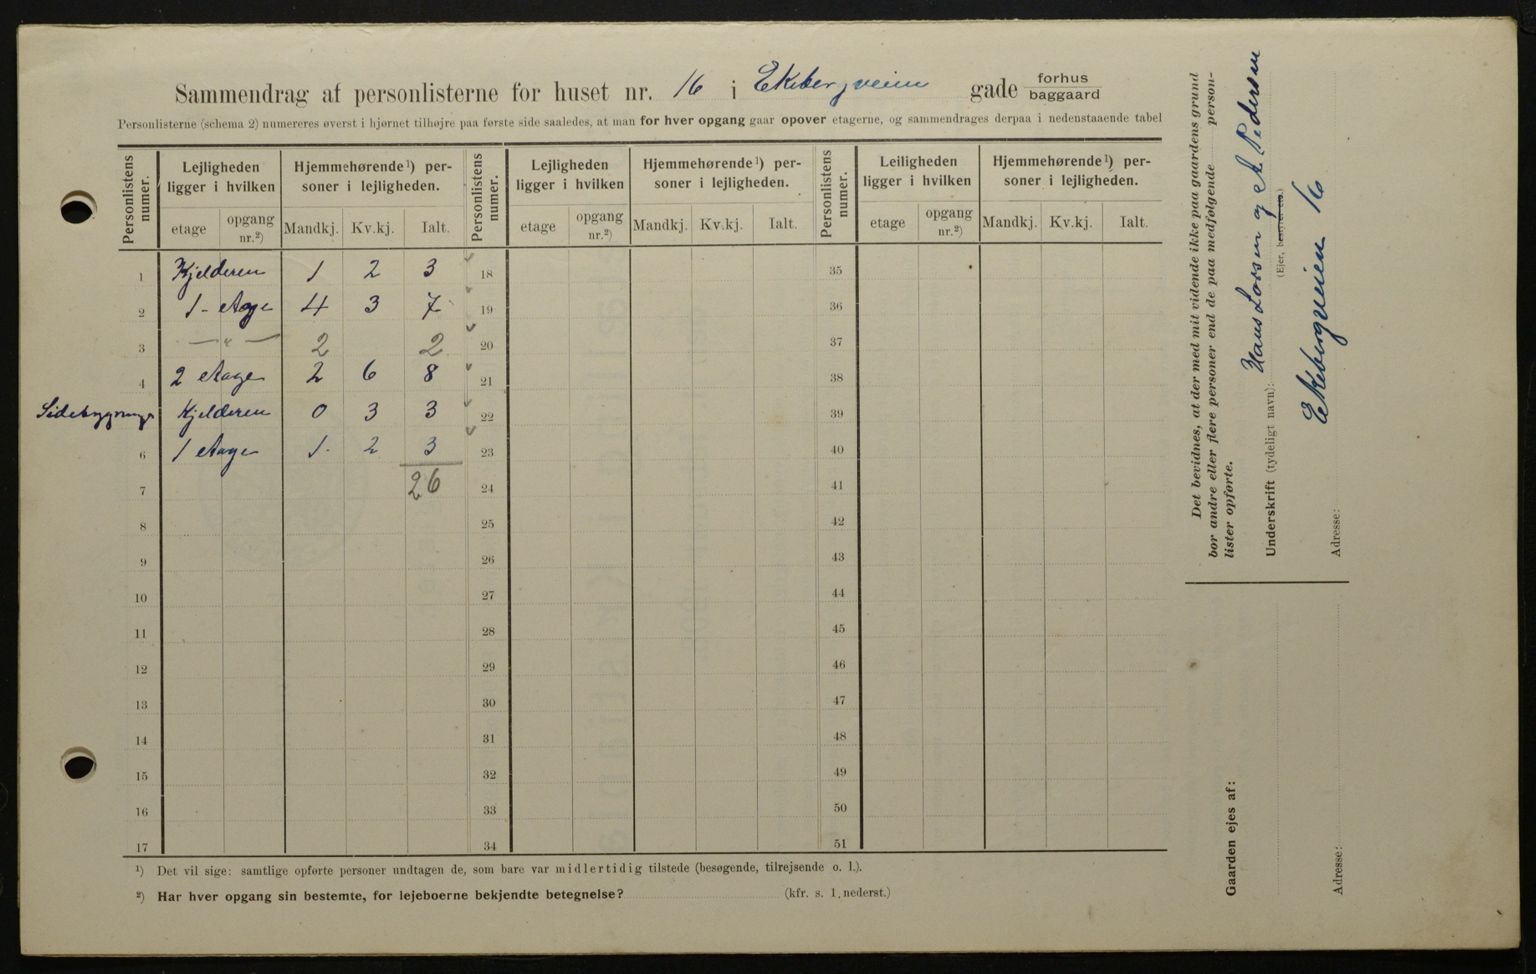 Sammendrag af personlisterne for huset nr. 16 i Ekebergveien gade forhus baggaard
Personlisterne (schema 2) numereres øverst i hjørnet tilhøjre paa første side saaledes, at man for hver opgang gaar opover etagerne, og sammendrages derpaa i nedenstaaende tabel
Personlistens numer. Lejligheden ligger i hvilken etage opgang nr.²) Hjemmehørende¹) personer i lejligheden. Mandkj. Kv.kj. Ialt.
Personlistens numer. Lejligheden ligger i hvilken etage opgang nr.²) Hjemmehørende¹) personer i lejligheden. Mandkj. Kv.kj. Ialt.
Personlistens numer. Leiligheden ligger i hvilken etage opgang nr.²) Hjemmehørende¹) personer i lejligheden. Mandkj. Kv.kj. Ialt.
1 Kjelderen 1 2 3 18 35
2 1- Etage 4 3 7 19 36
3 — " — 2 2 20 37
4 2 Etage 2 6 8 21 38
Sidebygning Kjelderen 0 3 3 22 39
6 1 Etage 1 2 3 23 40
7 26 24 41
8 25 42
9 26 43
10 27 44
11 28 45
12 29 46
13 30 47
14 31 48
15 32 49
16 33 50
17 34 51
¹) Det vil sige: samtlige opførte personer undtagen de, som bare var midlertidig tilstede (besøgende, tilrejsende o. l.).
²) Har hver opgang sin bestemte, for lejeboerne bekjendte betegnelse? (kfr. s. 1, nederst.)
Det bevidnes, at der med mit vidende ikke paa gaardens grund
bor andre eller flere personer end de paa medfølgende person-
lister opførte.
Underskrift (tydeligt navn): Hans Larsen og A. Pedersen
(Ejer, bestyrer etc.)
Adresse: Ekebergveien 16
Gaarden ejes af:
Adresse: